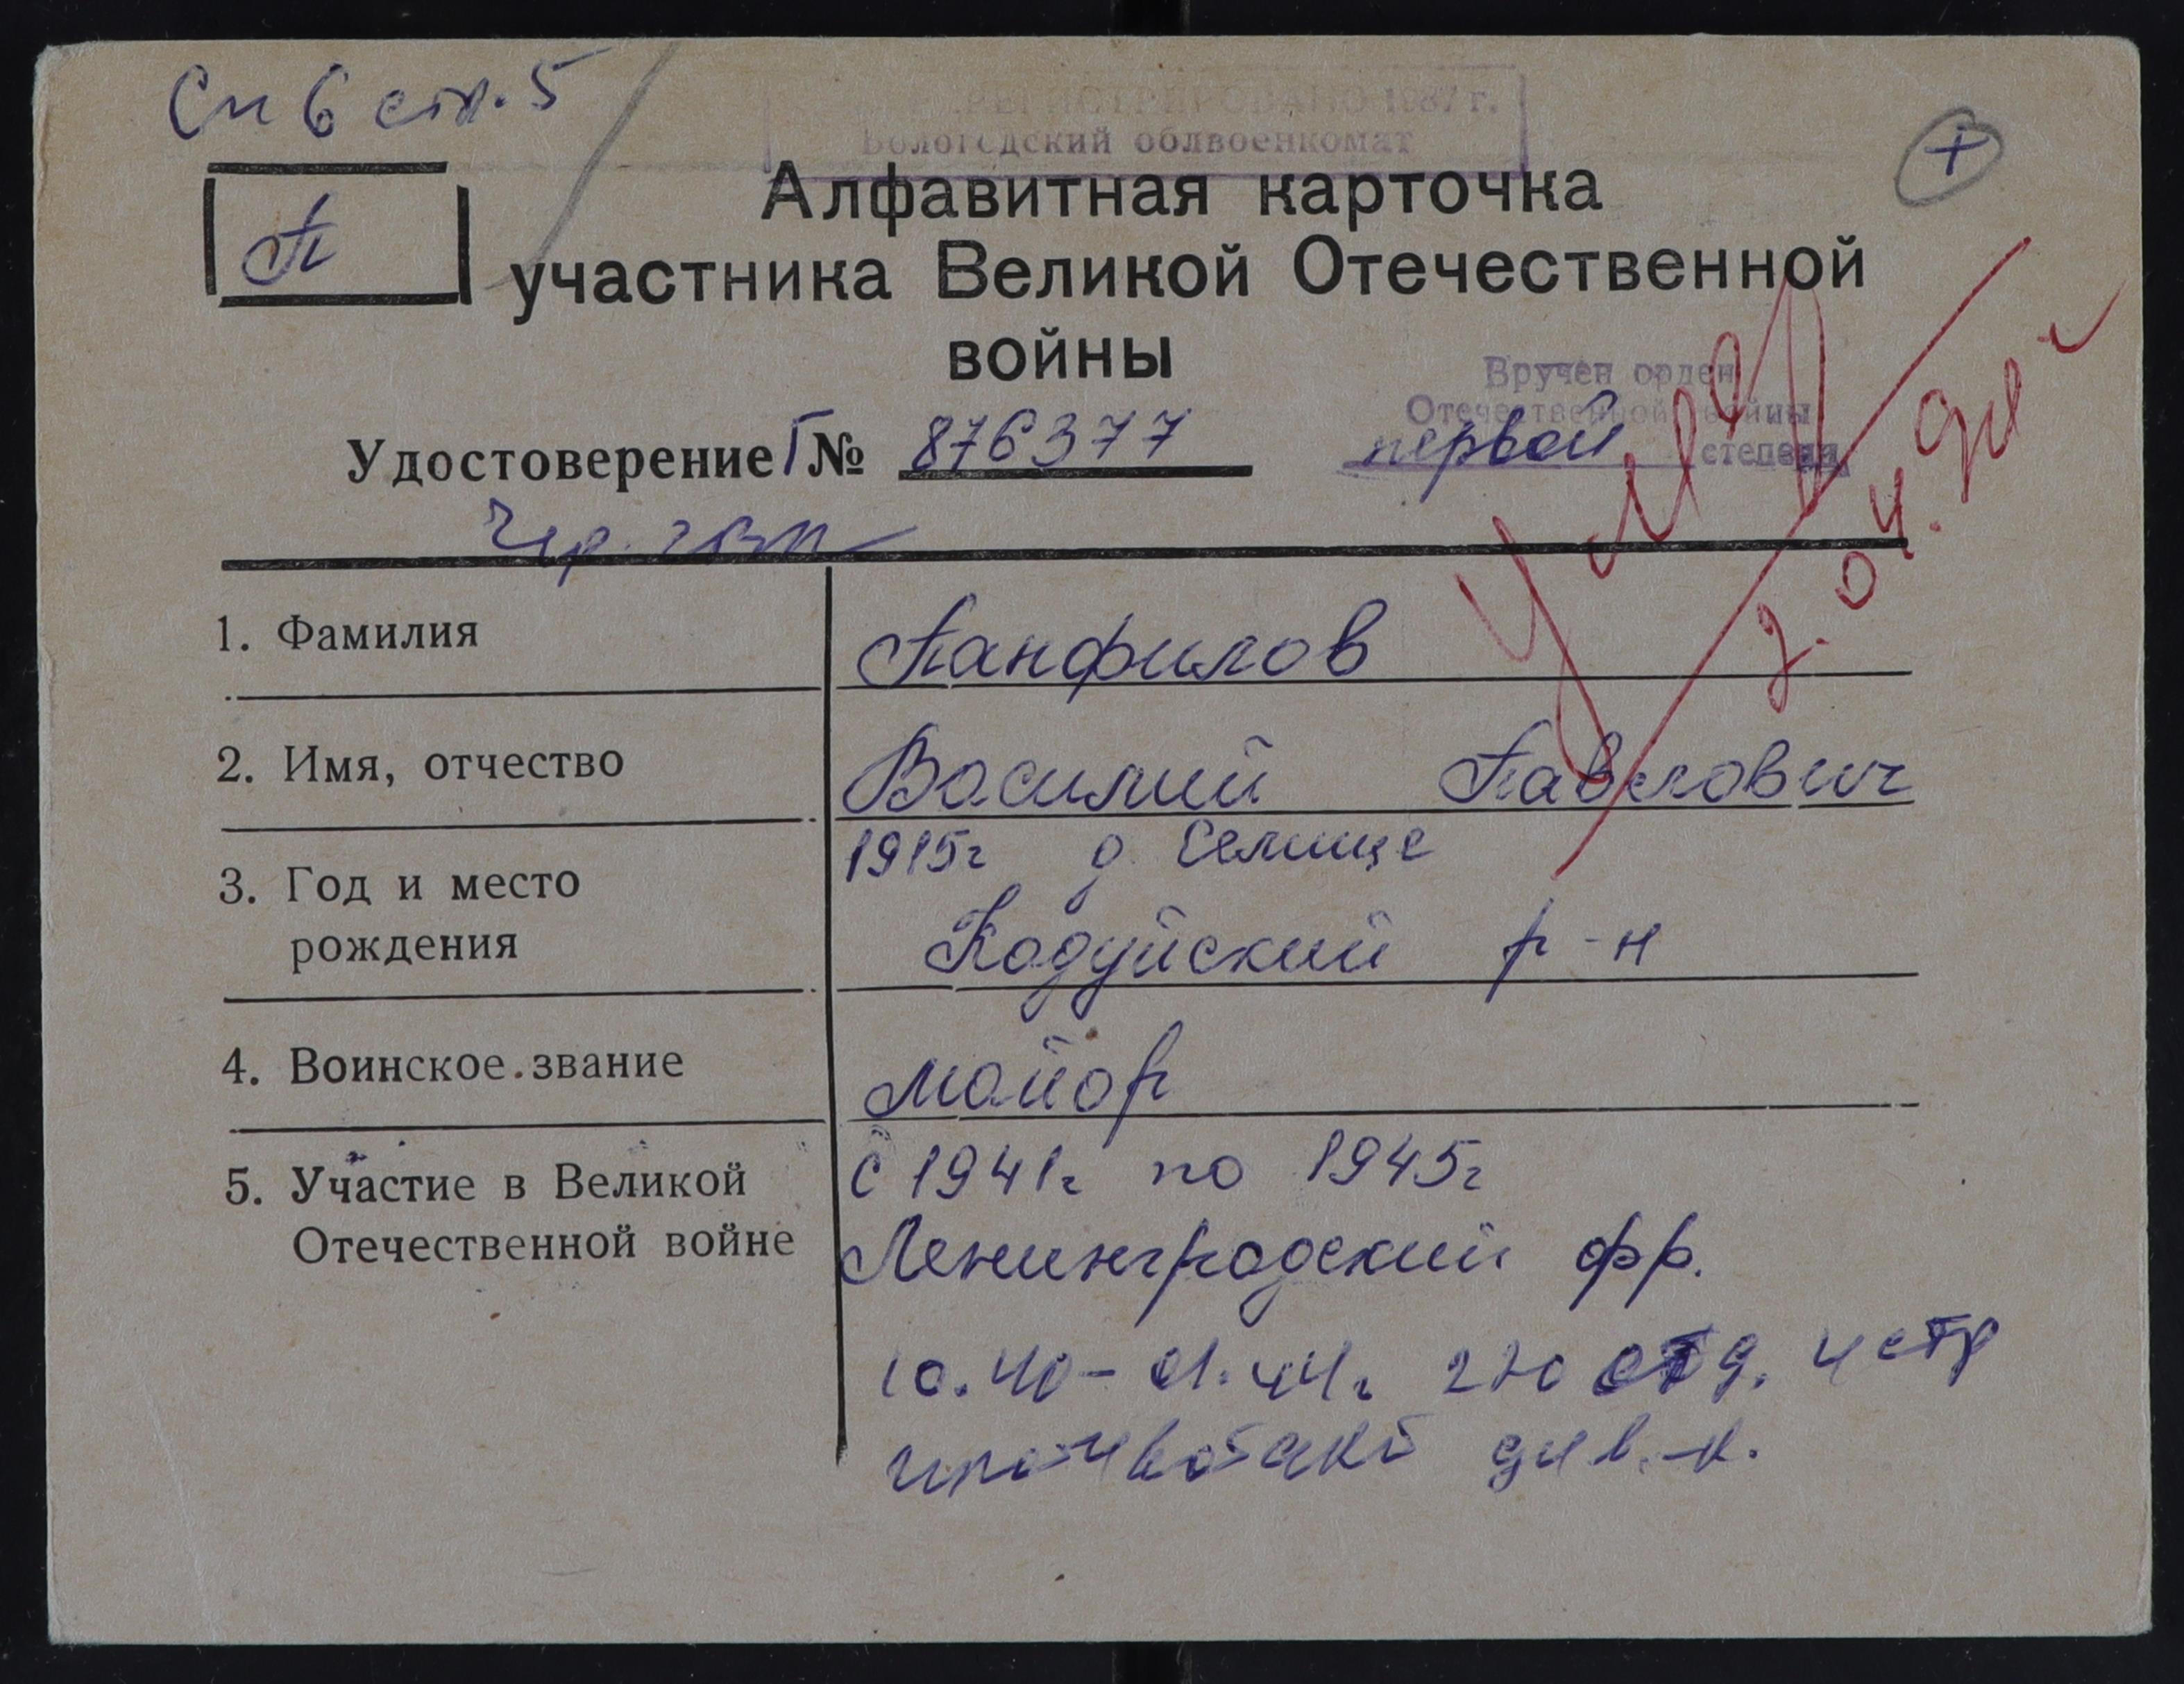 Сп 6 стр. 5
РЕГИСТРИРОВАНО 1987 г.
Вологодский облвоенкомат
+
П
Алфавитная карточка
участника Великой Отечественной
войны
Вручен орден
Отечественной войны
первой степени
Удостоверение Г № 876377
Умер
2.04.91 г
Чер.
1. Фамилия Панфилов
2. Имя, отчество Василий Павлович
3. Год и место рождения 1915г д Селище
Кодуйский р-н
4. Воинское звание майор
5. Участие в Великой Отечественной войне с 1941г по 1945г
Ленинградский фр.
10.40 - 01.44г